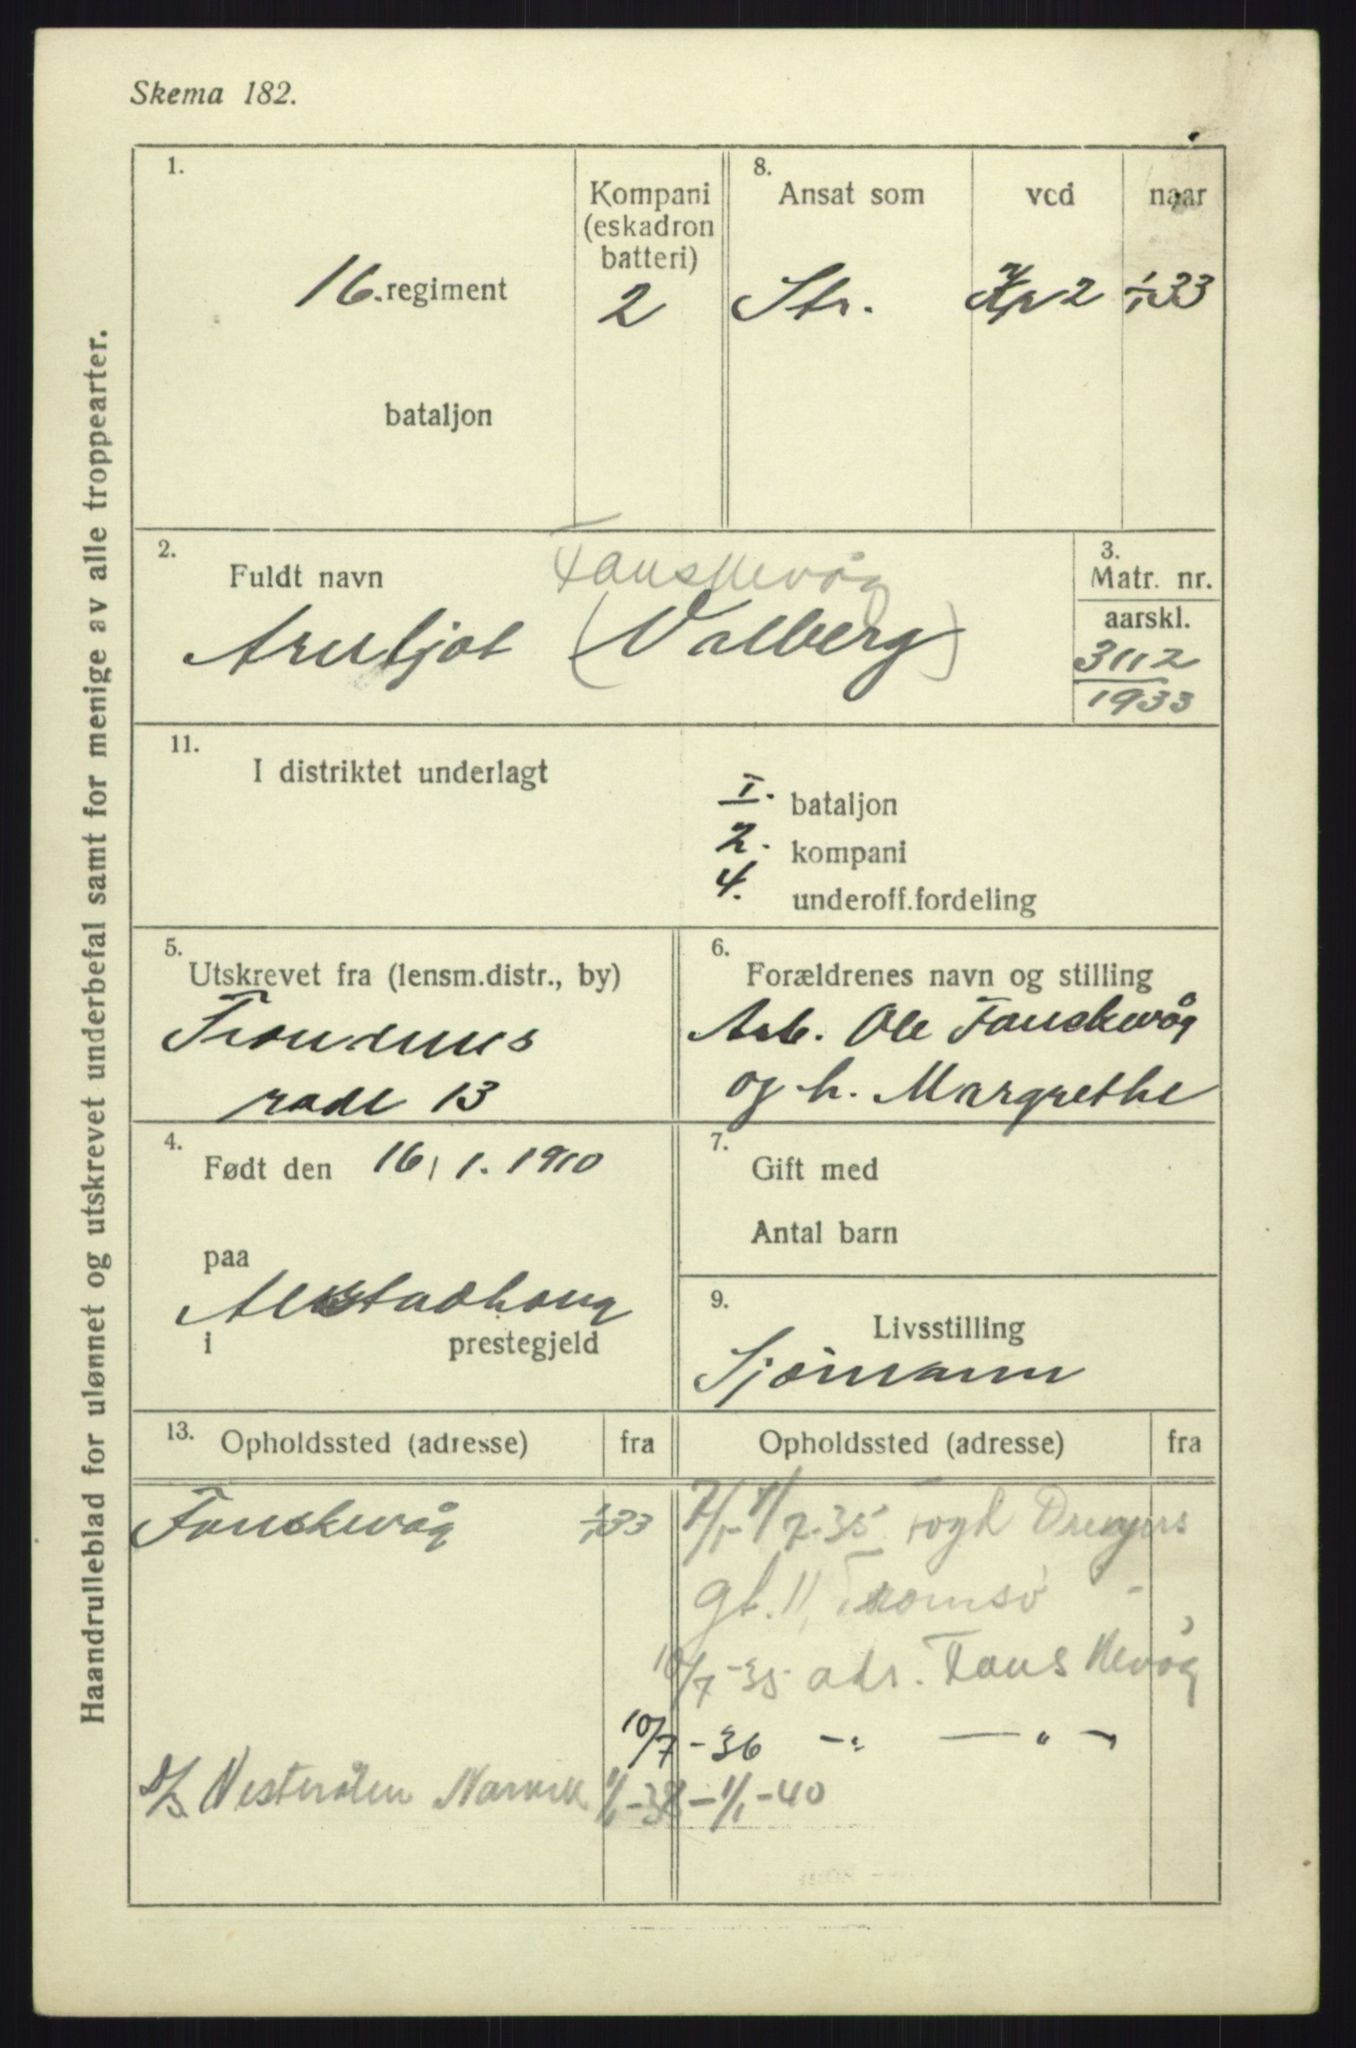 Skema 182.
Haandrulleblad for ulønnet og utskrevet underbefal samt for menige av alle troppearter.
1.
16. regiment
bataljon
Kompani
(eskadron
batteri)
2
8.
Ansat som
Str.
ved
Kp 2
naar
1/1 33
2.
Fuldt navn
Fauskevåg
Arnljot (Valberg)
3.
Matr. nr.
aarskl.
3112
1933
11.
I distriktet underlagt
I. bataljon
2. kompani
4. underoff.fordeling
5.
Utskrevet fra (lensm.distr., by)
Trondenes
rode 13
6.
Forældrenes navn og stilling
Arb. Ole Fauskevåg
og h. Margrethe
4.
Født den 16/1. 1910
paa
Alstadhaug
i prestegjeld
7.
Gift med
Antal barn
9.
Livsstilling
Sjømann
13.
Opholdssted (adresse) fra
Opholdssted (adresse) fra
Fauskevåg 1/1 33
7/1-1/7-35 Fogd Dreyers
gt. 11, Tromsø -
10/7-35 adr. Fauskevåg
10/7-36 -"- -"-
D/S Vesterålen Narvik 1/1-38-1/1-40